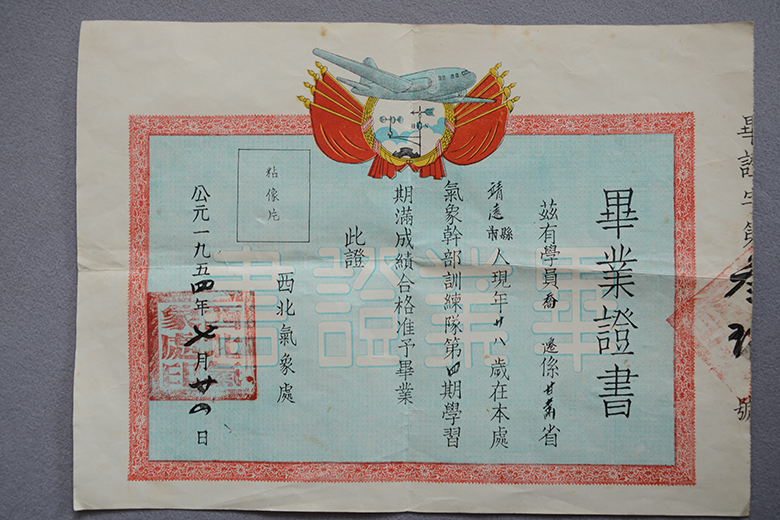 畢證字第叁
號
畢業證書
茲有學員喬遜係甘肅省
靖遠縣市人現年廿八歲在本處
氣象幹部訓練隊第四期學習
期滿成績合格准予畢業
此證
西北氣象處
粘像片
公元一九五四年七月廿四日
畢業證書
西北氣象處印